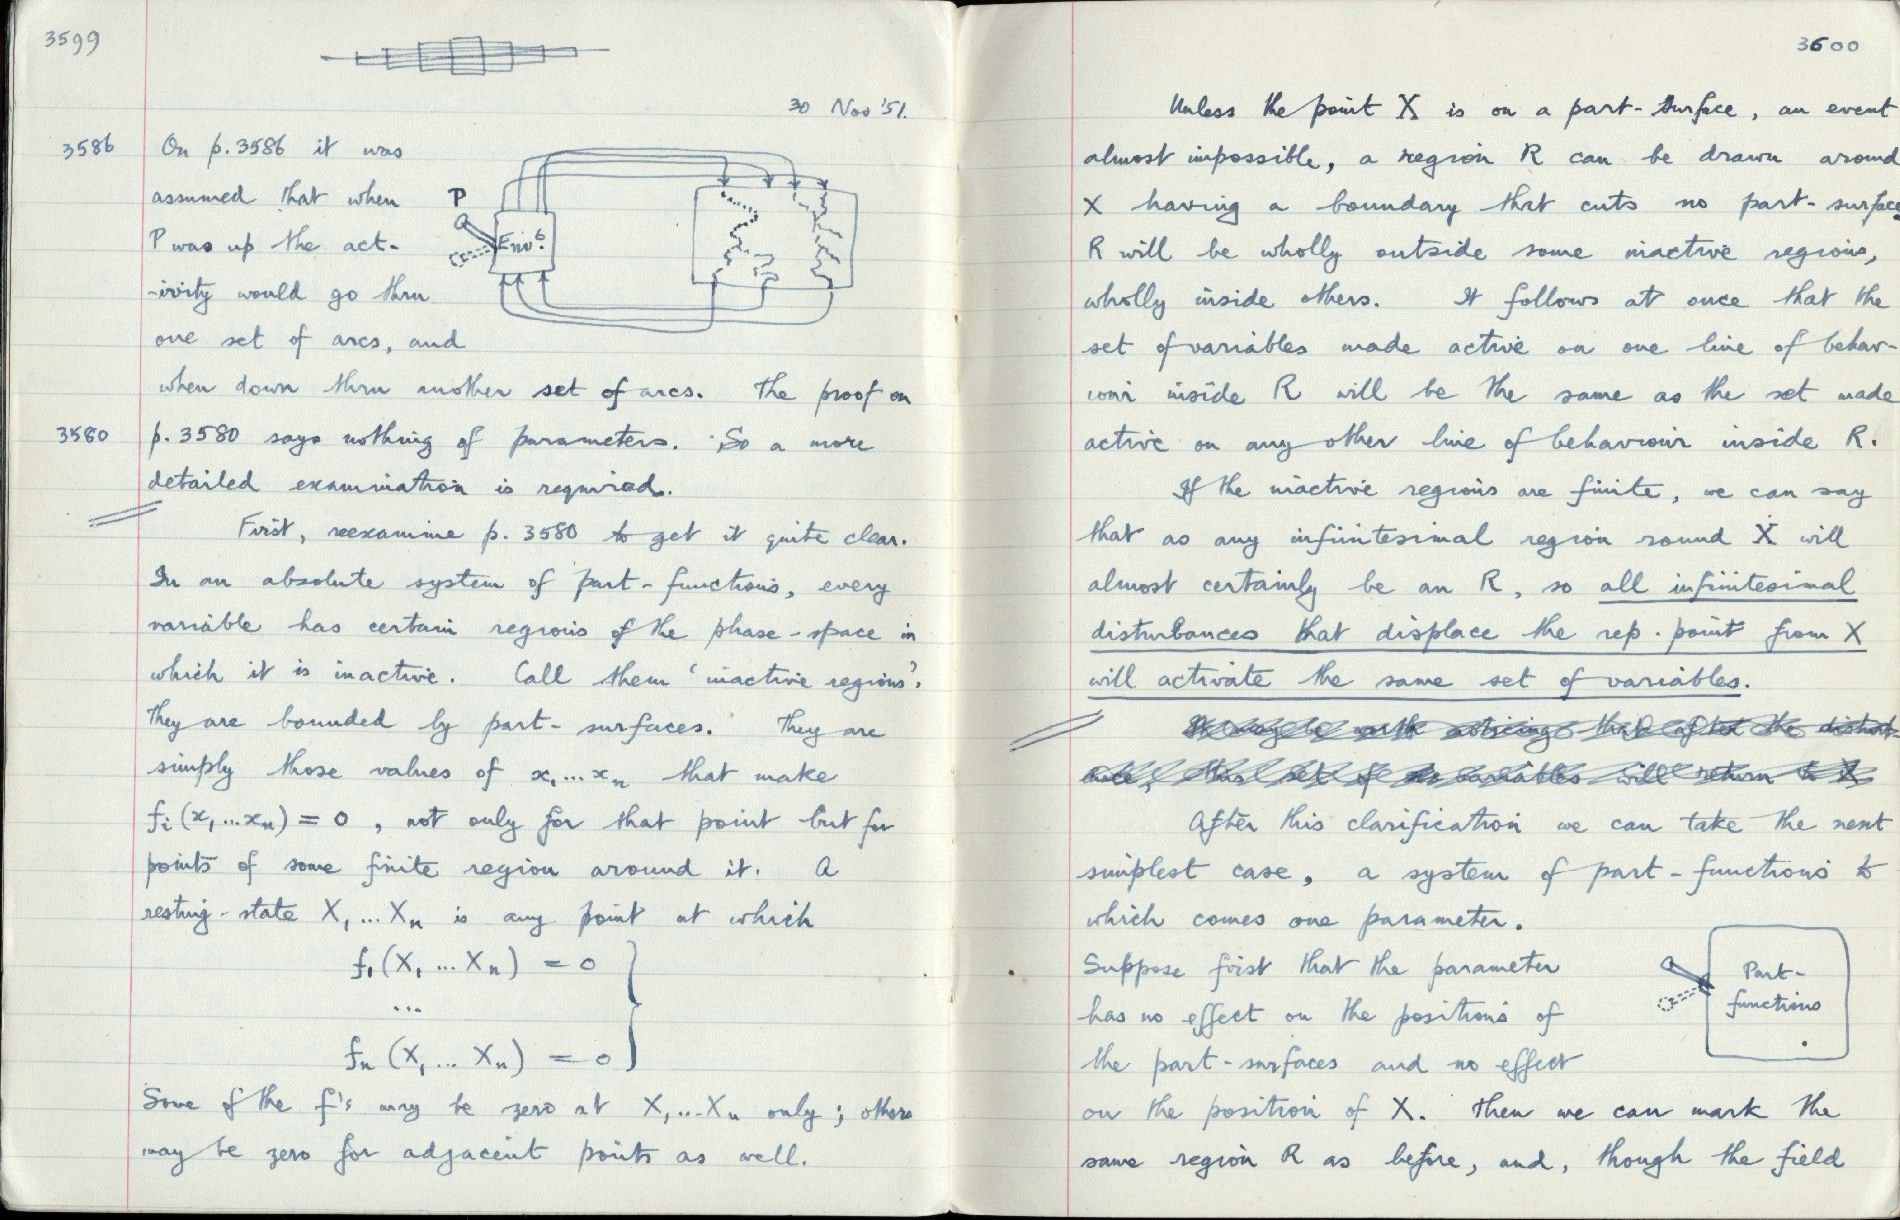 3599
30 Nov '51.
3586
On p. 3586 it was
assumed that when
P was up the act-
-ivity would go thru
one set of arcs, and
when down thru another set of arcs. The proof on
P
Envt.
3580
p. 3580 says nothing of parameters. So a more
detailed examination is required.
First, reexamine p. 3580 to get it quite clear.
In an absolute system of part-functions, every
variable has certain regions of the phase-space in
which it is inactive. Call them 'inactive regions'.
They are bounded by part-surfaces. They are
simply those values of x₁...xₙ that make
fᵢ(x₁...xₙ) = 0, not only for that point but for
points of some finite region around it. A
resting-state X₁...Xₙ is any point at which
f₁(X₁...Xₙ) = 0
...
fₙ(X₁...Xₙ) = 0
Some of the f's may be zero at X₁...Xₙ only; others
may be zero for adjacent points as well.
3600
Unless the point X is on a part-surface, an event
almost impossible, a region R can be drawn around
X having a boundary that cuts no part-surface.
R will be wholly outside some inactive regions,
wholly inside others. It follows at once that the
set of variables made active on one line of behav-
iour inside R will be the same as the set made
active on any other line of behaviour inside R.
If the inactive regions are finite, we can say
that as any infinitesimal region round X will
almost certainly be an R, so all infinitesimal
disturbances that displace the rep. point from X
will activate the same set of variables.
It may be worth noticing that after the disturb-
ance, this set of variables will return to X
After this clarification we can take the next
simplest case, a system of part-functions to
which comes one parameter.
Suppose first that the parameter
has no effect on the positions of
the part-surfaces and no effect
on the position of X. Then we can mark the
same region R as before, and, though the field
Part-
functions